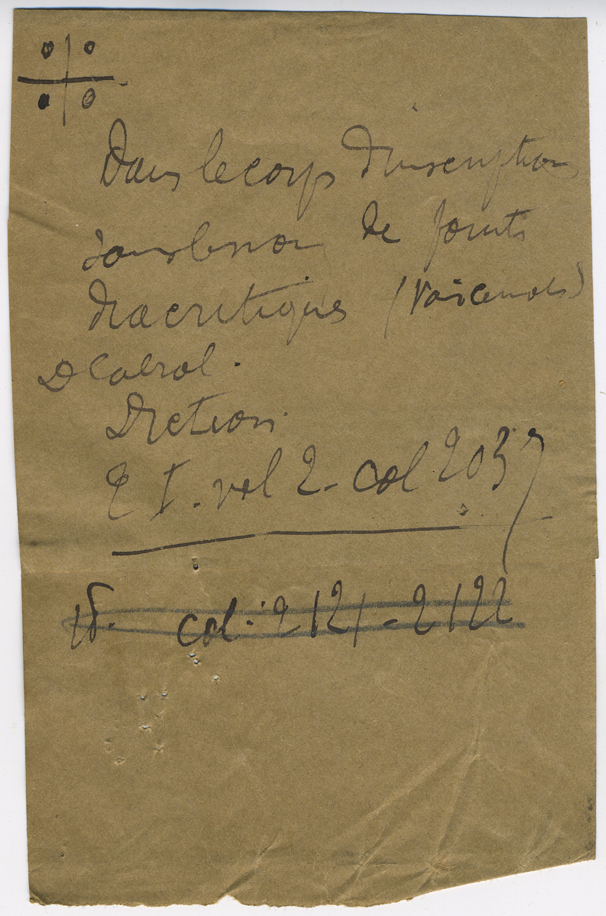 Dans le corps d'inscription
de points
diacritiques (
D Cabrol.
Diction.
2 I. vol 2 - col 2037
id. col: 2121 - 2122